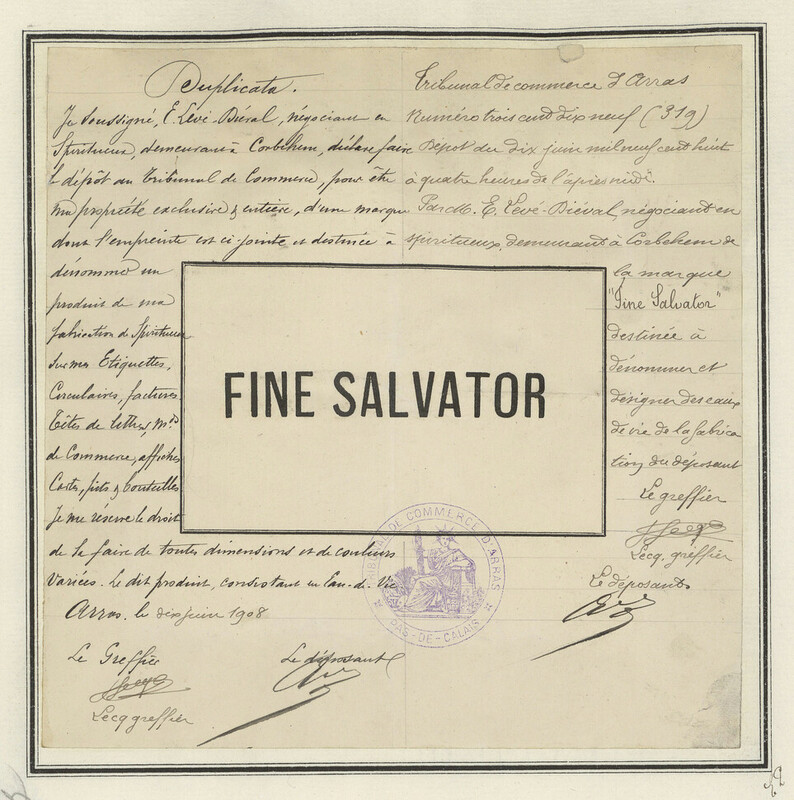 Duplicata.
Je soussigné, E. Levé-Biéval, négociant en
Spiritueux, demeurant à Corbehem, déclare faire
le dépôt au Tribunal de Commerce, pour être
ma propriété exclusive & entière, d'une marque
dont l'empreinte est ci jointe et destinée à
dénommer un
produit de ma
fabrication de Spiritueux
sur mes Etiquettes,
Circulaires, factures
Têtes de lettres, Mds
de Commerce, affiches
Cartes, fûts & bouteilles
Je me réserve le droit
de le faire de toutes dimensions et de couleurs
variées. Le dit produit, consistant en Eau-de-Vie
Arras, le dix juin 1908
Le Greffier
Lecq greffier
Le déposant
FINE SALVATOR
Tribunal de commerce d'Arras
Numéro trois cent dix neuf (319)
Dépôt du dix juin mil neuf cent huit
à quatre heures de l'après midi.
Par M. E. Levé-Biéval, négociant en
spiritueux, demeurant à Corbehem de
la marque
"Fine Salvator"
destinée à
dénommer et
désigner des eaux
de vie de la fabrica
tion du déposant
Le greffier
Lecq. greffier
Le déposant
TRIBUNAL DE COMMERCE D'ARRAS
PAS-DE-CALAIS